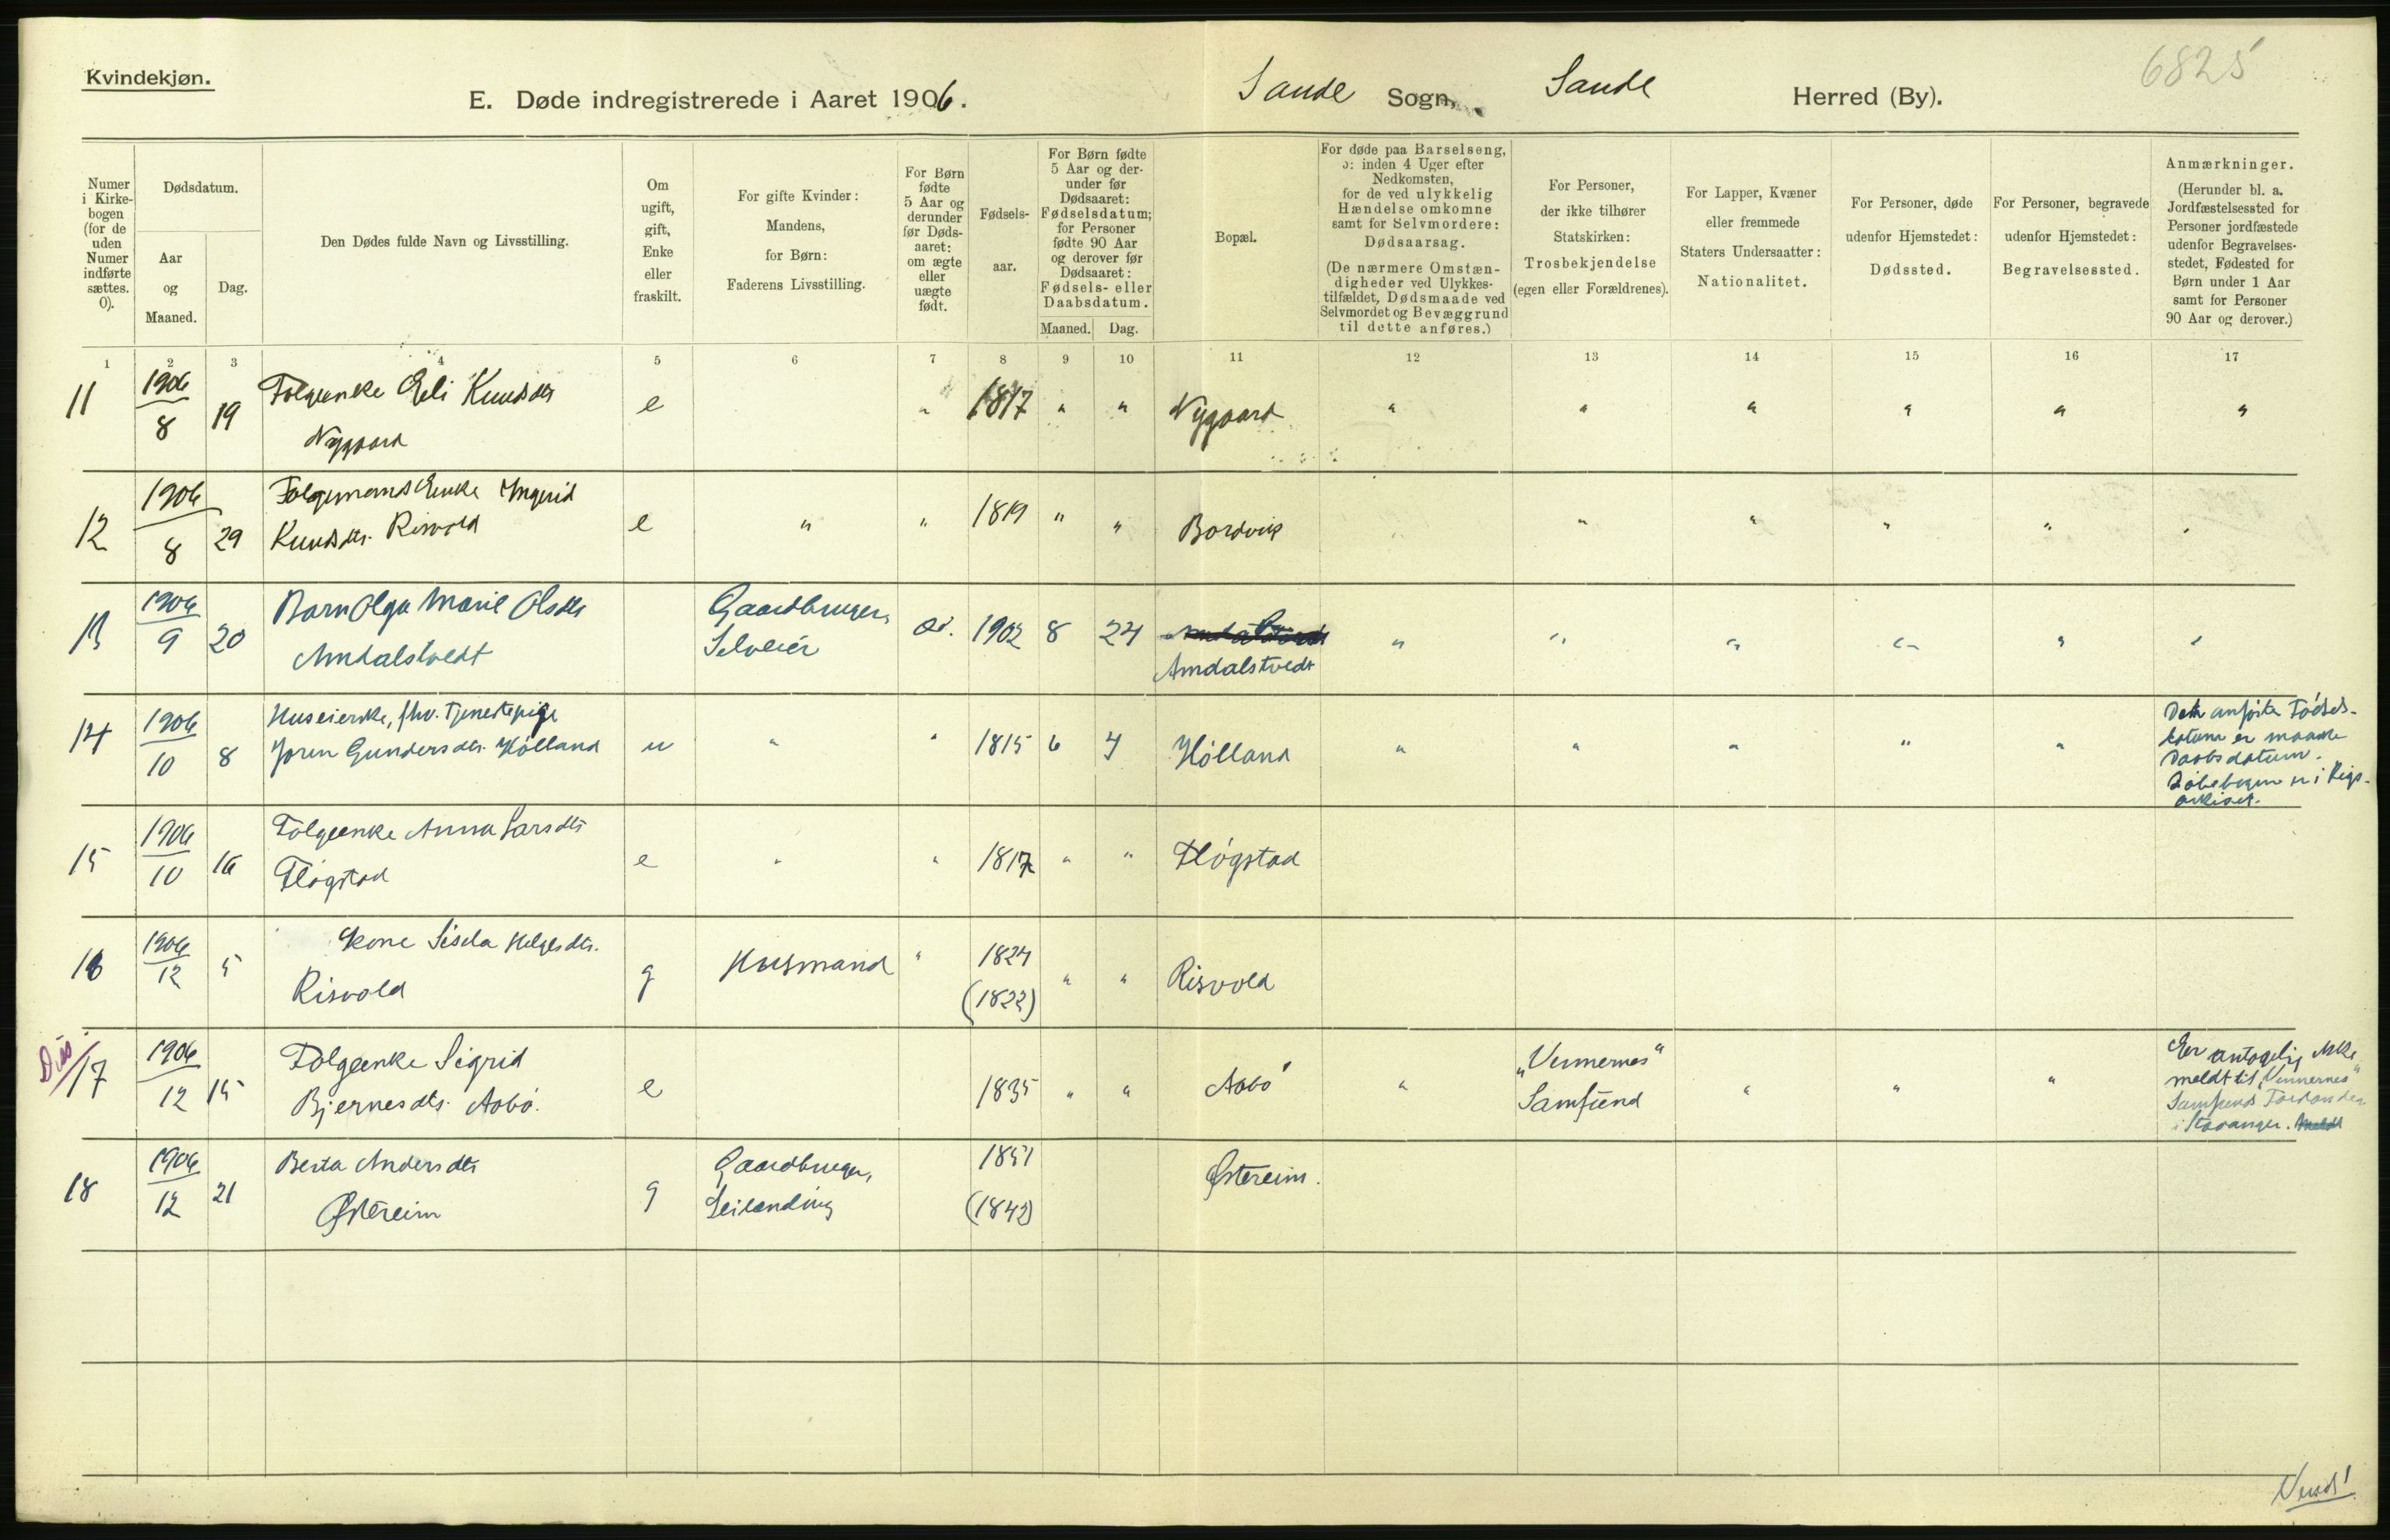 6825
Kvindekjøn.
E. Døde indregistrerede i Aaret 1906.
Sande Sogn, Sande Herred (By).
Numer i Kirkebogen (for de uden Numer indførte sættes. 0).
Dødsdatum.
Aar og Maaned.
Dag.
Den Dødes fulde Navn og Livsstilling.
Om ugift, gift, Enke eller fraskilt.
For gifte Kvinder: Mandens, for Børn: Faderens Livsstilling.
For Børn fødte 5 Aar og derunder før Dødsaaret: om ægte eller uægte født.
Fødselsaar.
For Børn fødte 5 Aar og derunder før Dødsaaret: Fødselsdatum; for Personer fødte 90 Aar og derover før Dødsaaret: Fødsels- eller Daabsdatum.
Maaned. Dag.
Bopæl.
For døde paa Barselseng, ɔ: inden 4 Uger efter Nedkomsten, for de ved ulykkelig Hændelse omkomne samt for Selvmordere: Dødsaarsag.
(De nærmere Omstændigheder ved Ulykkestilfældet, Dødsmaade ved Selvmordet og Bevæggrund til dette anføres.)
For Personer, der ikke tilhører Statskirken: Trosbekjendelse (egen eller Forældrenes).
For Lapper, Kvæner eller fremmede Staters Undersaatter: Nationalitet.
For Personer, døde udenfor Hjemstedet: Dødssted.
For Personer, begravede udenfor Hjemstedet: Begravelsessted.
Anmærkninger.
(Herunder bl. a. Jordfæstelsessted for Personer jordfæstede udenfor Begravelsesstedet, Fødested for Børn under 1 Aar samt for Personer 90 Aar og derover.)
1 2 3 4 5 6 7 8 9 10 11 12 13 14 15 16 17
11 1906/8 19 Folgeenke Eli Knudsdtr Nygaard e " 1817 " " Nygaard " " " " " "
12 1906/8 29 Folgemands Enke Ingrid Knudsdtr. Risvold e " " 1819 " " Bordvik " " " " "
13 1906/9 20 Barn Olga Marie Olsdtr Amdalstvedt Gaardbruger, Selveier 1902 8 24 Amdalstvedt " " " " " "
14 1906/10 8 Huseierske, fhv. Tjenestepige Joren Gundersdtr. Hölland u " " 1815 6 4 Hölland " " " " " Den anførte Fødselsdatum er maaske Daabsdatum. Døbebogen er i Rigsarkivet.
15 1906/10 16 Folgeenke Anna Larsdtr Flögstad e " " 1817 " " Flögstad
16 1906/12 5 Kone Sisela Helgesdtr. Risvold g Husmand " 1824 (1822) " " Risvold
Dis/17 1906/12 15 Folgeenke Sigrid Bjernesdtr. Aabö. e 1835 " " Aabö " "Vennernes" Samfund " " " Er antagelig ikke meldt til "Vennernes" Samfunds Forstander i Stavanger.
18 1906/12 21 Berta Andersdtr Østereim g Gaardbruger, Leilending 1841 (1842) Østereim.
Vend!